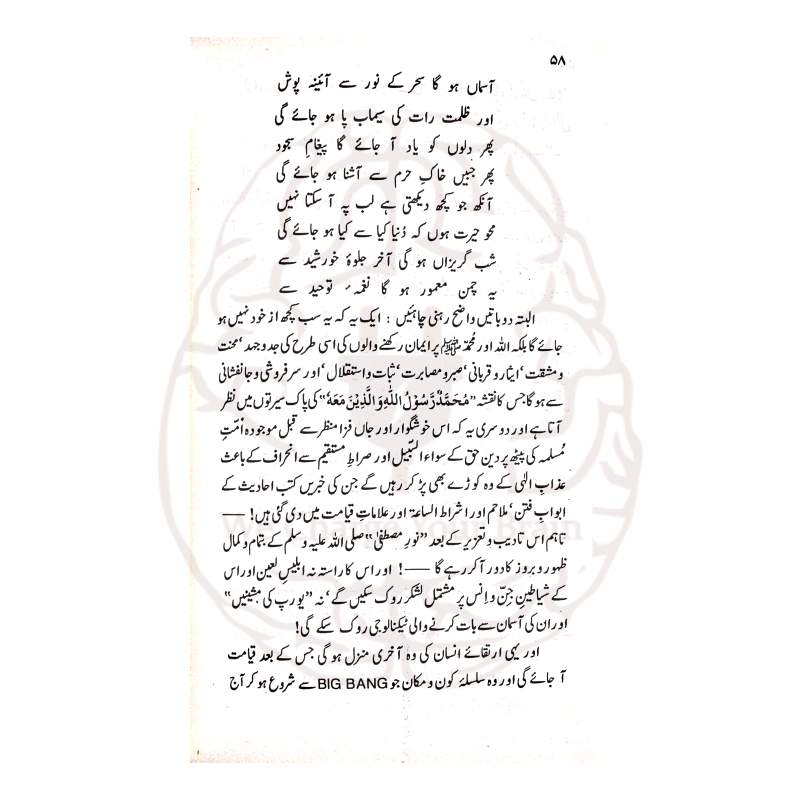 ۵۸
آسماں ہو گا سحر کے نور سے آئینہ پوش
اور ظلمت رات کی سیماب پا ہو جائے گی
پھر دلوں کو یاد آ جائے گا پیغامِ سجود
پھر جبیں خاکِ حرم سے آشنا ہو جائے گی
آنکھ جو کچھ دیکھتی ہے لب پہ آ سکتا نہیں
محوِ حیرت ہوں کہ دُنیا کیا سے کیا ہو جائے گی
شب گریزاں ہو گی آخر جلوۂ خورشید سے
یہ چمن معمور ہو گا نغمۂ توحید سے
البتہ دو باتیں واضح رہنی چاہئیں : ایک یہ کہ یہ سب کچھ از خود نہیں ہو
جائے گا بلکہ اللہ اور مُحمّد ﷺ پر ایمان رکھنے والوں کی اسی طرح کی جدوجہد‘ محنت
و مشقت‘ ایثار و قربانی‘ صبر و مصابرت‘ ثبات و استقلال‘ اور سرفروشی و جانفشانی
سے ہو گا‘ جس کا نقشہ ”مُحَمَّدٌ رَّسُوْلُ اللّٰهِ وَالَّذِیْنَ مَعَهٗ“ کی پاک سیرتوں میں نظر
آتا ہے اور دوسری یہ کہ اس خوشگوار اور جاں فزا منظر سے قبل موجودہ اُمّتِ
مُسلمہ کی پیٹھ پر دینِ حق کے سواء السّبیل اور صراطِ مستقیم سے انحراف کے باعث
عذابِ الٰہی کے وہ کوڑے بھی پڑ کر رہیں گے جن کی خبریں کتبِ احادیث کے
ابوابِ فتن‘ ملاحم اور اشراط الساعۃ اور علاماتِ قیامت میں دی گئی ہیں! ——
تاہم اس تادیب و تعزیر کے بعد ”نورِ مصطفیٰ“ صلی اللہ علیہ وسلم کے بتمام و کمال
ظہور و بروز کا دور آ کر رہے گا ——! اور اس کا راستہ نہ ابلیسِ لعین اور اس
کے شیاطینِ جِنّ و اِنس پر مشتمل لشکر روک سکیں گے‘ نہ ”یورپ کی مشینیں“
اور ان کی آسمان سے بات کرنے والی ٹیکنالوجی روک سکے گی!
اور یہی ارتقائے انسان کی وہ آخری منزل ہو گی جس کے بعد قیامت
آ جائے گی اور وہ سلسلۂ کون و مکان جو BIG BANG سے شروع ہو کر آج